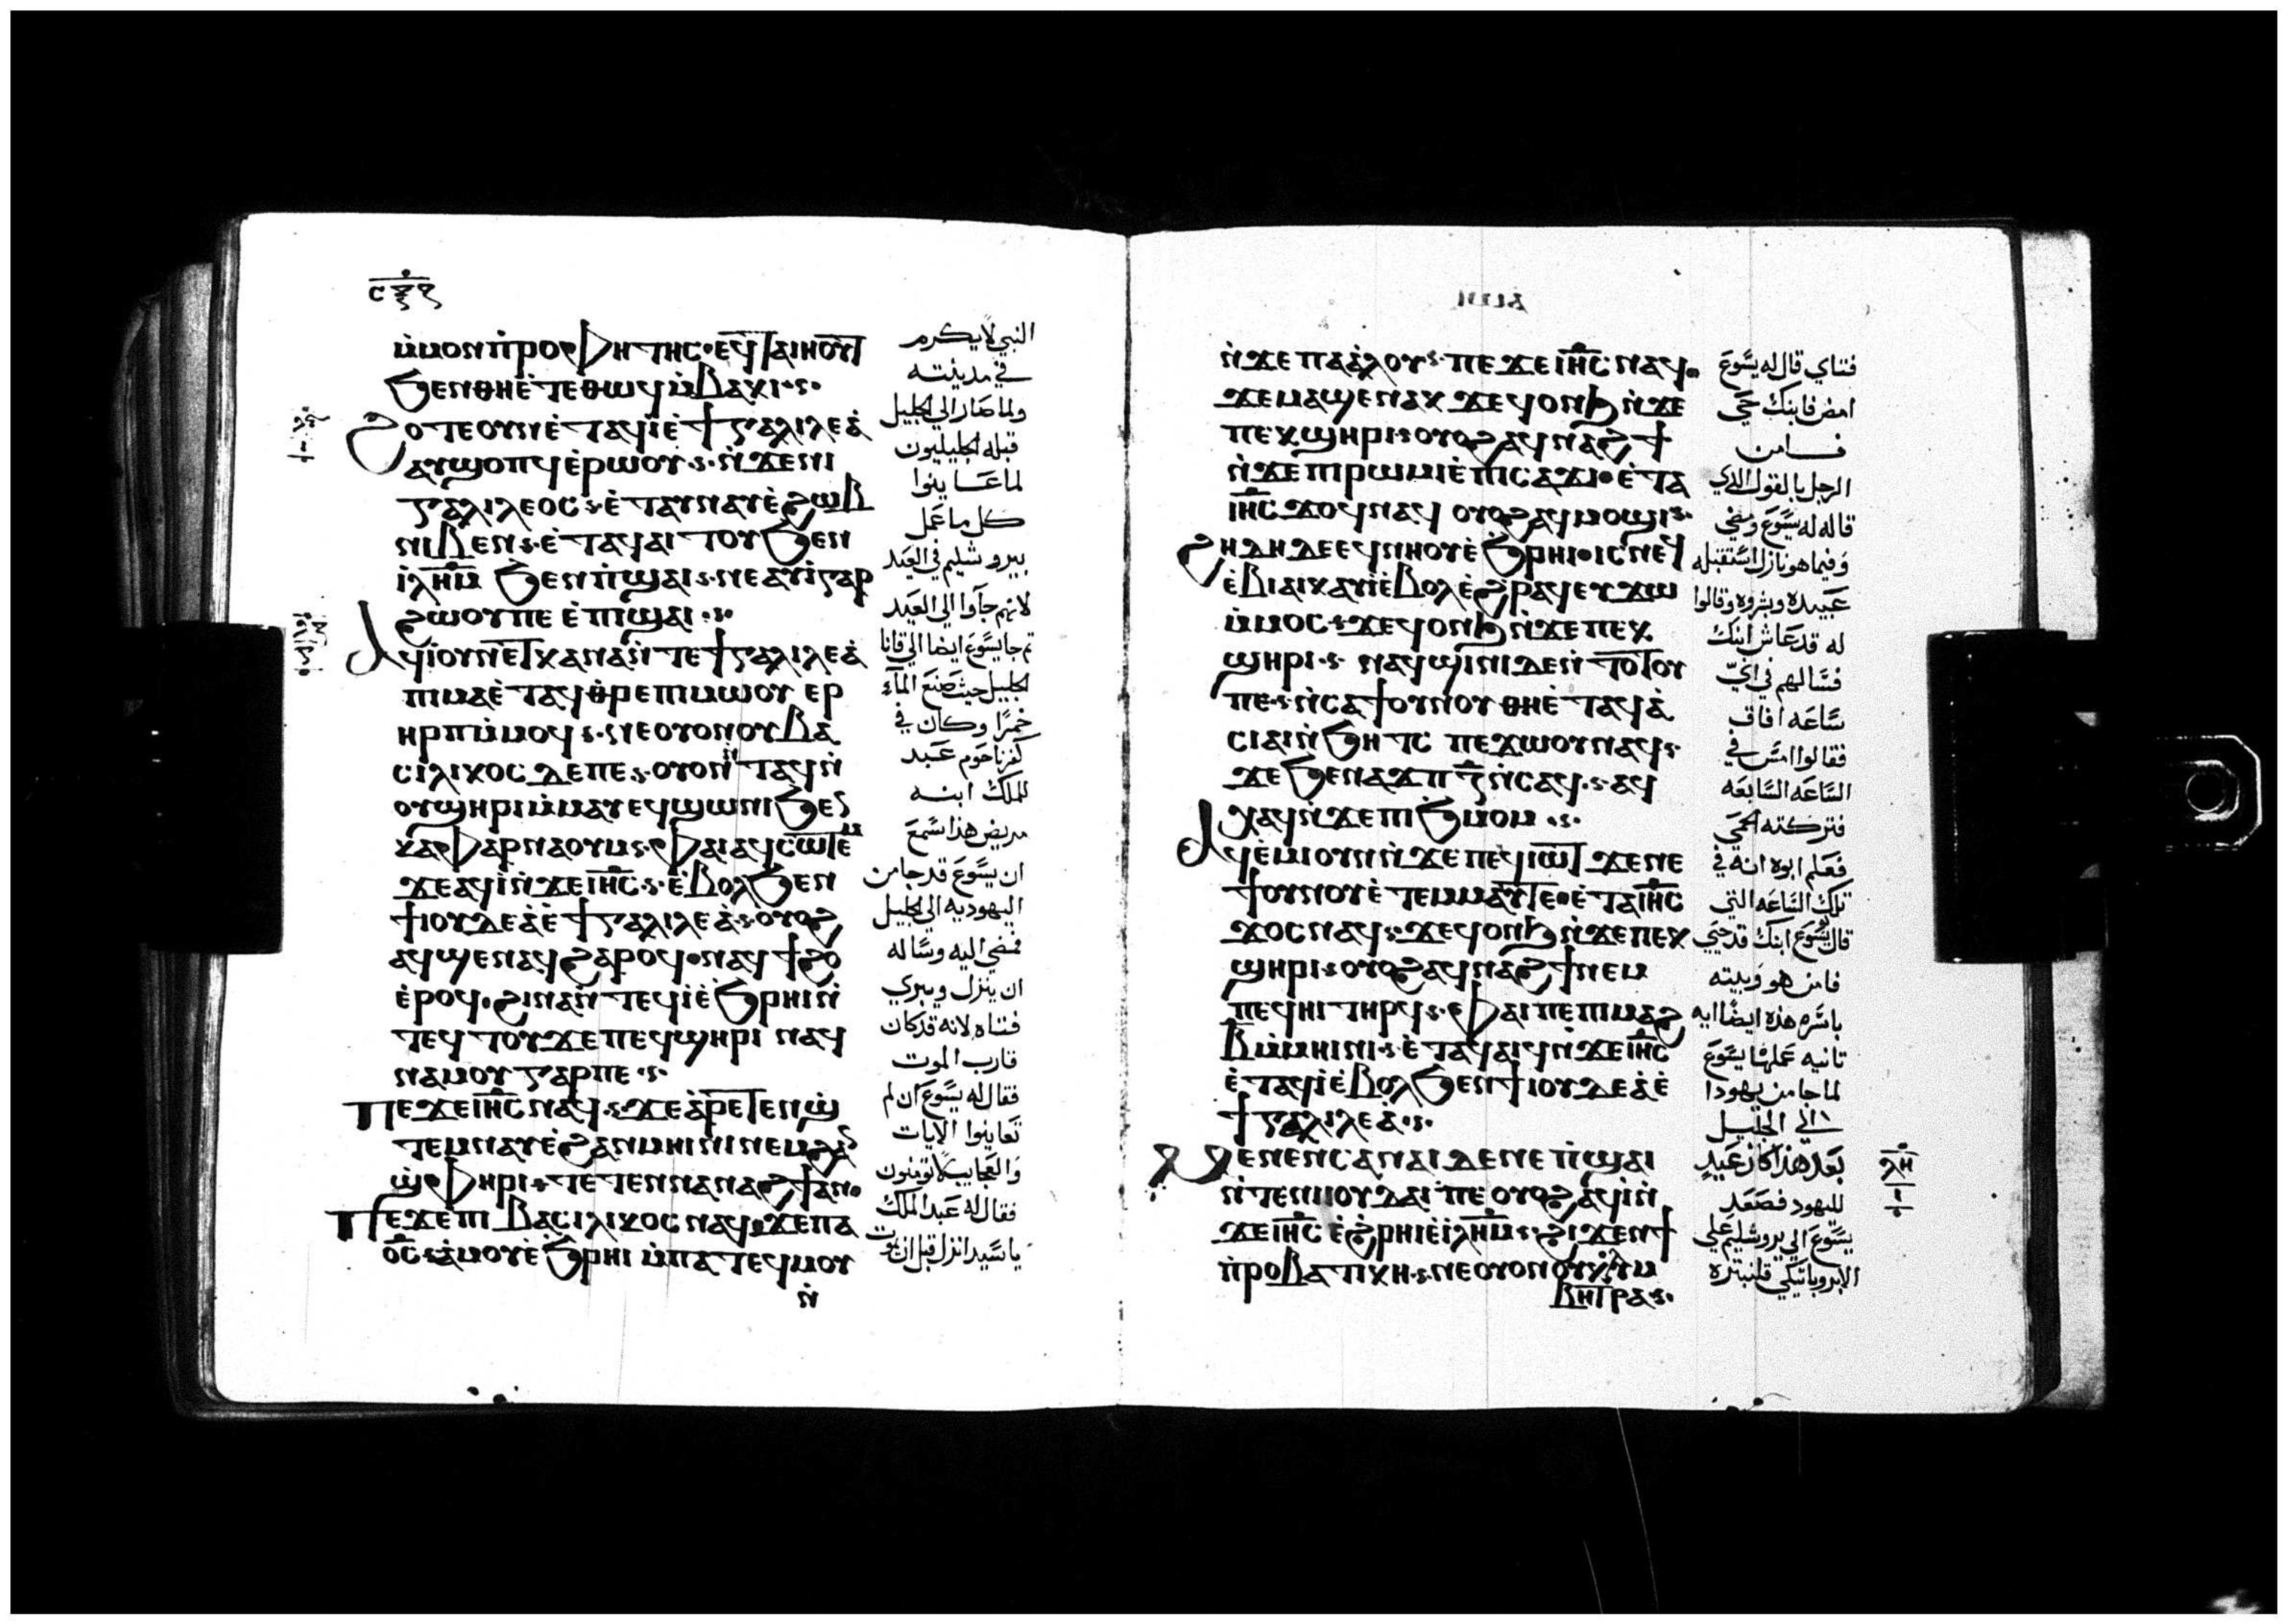 ⲙ̇ⲙⲟⲛⲡ̇ⲣⲟⲫⲏⲧⲏⲥ·ⲉϥⲧⲁⲓⲏⲟⲩⲧ
ϧⲉⲛⲑⲏⲉ̇ⲧⲉⲑⲱϥⲙ̇ⲃⲁⲕⲓ·
ϩⲟⲧⲉⲟⲩⲛⲉ̇ⲧⲁϥⲓ̇ⲉ̇ϯⲅⲁⲗⲓⲗⲉⲁ̇
ⲁⲩϣⲟⲡϥⲉ̇ⲣⲱⲟⲩ·ⲛ̇ϫⲉⲛⲓ
ⲅⲁⲗⲓⲗⲉⲟⲥ·ⲉ̇ⲧⲁⲩⲛⲁⲩⲉ̇ϩⲱⲃ
ⲛⲓⲃⲉⲛ·ⲉ̇ⲧⲁϥⲁⲓⲧⲟⲩϧⲉⲛ
ⲓ̇ⲗⲏⲙ ϧⲉⲛⲡ̇ϣⲁⲓ·ⲛⲉⲁⲩⲓ̇ⲅⲁⲣ
ϩⲱⲟⲩⲡⲉ ⲉ̇ⲡⲓϣⲁⲓ·
ⲁϥⲓ̇ⲟⲩⲛⲉ̇ⲧⲕⲁⲛⲁⲛ̇ⲧⲉϯⲅⲁⲗⲓⲗⲉⲁ̇
ⲡⲓⲙⲁⲉ̇ⲧⲁϥⲑ̇ⲣⲉⲡⲓⲙⲱⲟⲩ ⲉⲣ
ⲏⲣⲡⲙ̇ⲙⲟϥ·ⲛⲉⲟⲩⲟⲛⲟⲩⲃⲁ
ⲥⲓⲗⲓⲕⲟⲥ ⲇⲉⲡⲉ·ⲟⲩⲟⲛⲛ̇ⲧⲁϥⲛ̇
ⲟⲩϣⲏⲣⲓⲙ̇ⲙⲁⲩⲉϥϣⲱⲛⲓϧⲉⲛ
ⲕⲁⲫⲁⲣⲛⲁⲟⲩⲙ·ⲫⲁⲓⲁϥⲥⲱⲧⲉⲙ
ϫⲉⲁϥⲓ̇ⲛ̇ϫⲉⲓⲏⲥ·ⲉ̇ⲃⲟⲗϧⲉⲛ
ϯⲓⲟⲩⲇⲉⲁ̇ⲉ̇ϯⲅⲁⲗⲓⲗⲉⲁ̇·ⲟⲩⲟϩ
ⲁϥϣⲉⲛⲁϥϩⲁⲣⲟϥ·ⲛⲁϥϯϩⲟ
ⲉ̇ⲣⲟϥ·ϩⲓⲛⲁⲛ̇ⲧⲉϥⲓ̇ⲉ̇ϧⲣⲏⲓⲛ̇
ⲧⲉϥⲧⲟⲩϫⲉⲡⲉϥϣⲏⲣⲓ ⲛⲁϥ
ⲛⲁⲙⲟⲩⲅⲁⲣⲡⲉ·
ⲡⲉϫⲉⲓⲏⲥⲛⲁϥ·ϫⲉⲁ̇ⲣⲉⲧⲉⲛϣ̇
ⲧⲉⲙⲛⲁⲩⲉ̇ϩⲁⲛⲙⲏⲓⲛⲓⲛⲉⲙϩⲁⲛ
ϣ̇ⲫⲏⲣⲓ·ⲧⲉⲧⲉⲛⲛⲁⲛⲁϩϯⲁⲛ·
ⲡⲉϫⲉⲡⲓ ⲃⲁⲥⲓⲗⲓⲕⲟⲥ ⲛⲁϥ·ϫⲉⲡⲁ
ⲟ̅ⲥ̅·ⲁ̇ⲙⲟⲩⲉ̇ϧⲣⲏⲓ ⲙ̇ⲡⲁⲧⲉϥⲙⲟⲩ
ⲛ̇
النبي لا يكرم
في مدينته
ولما صار الي الجليل
قبله الجليليون
لما عاينوا
كل ما عمل
بيروشليم في العيد
لانهم جآوا الي العيد
ثم جا يسوع ايضا الي قانا
الجليل حيث صنع المآء
خمرًا وكان في
كفرناحوم عبد
للملك ابنه
مريض هذا سمع
ان يسوع قد جا من
اليهوديه الي الجليل
فمضي اليه وساله
ان ينزل ويبري
فتاه لانه قد كان
قارب الموت
فقال له يسوع ان لم
تعاينوا الايات
والعجايب لا تومنون
فقال له عبد الملك
يا سيد انزل قبل ان يموت
ⲛ̇ϫⲉⲡⲁⲁ̇ⲗⲟⲩ·ⲡⲉϫⲉⲓⲏⲥⲛⲁϥ·
ϫⲉⲙⲁϣⲉⲛⲁⲕ ϫⲉϥⲟⲛϧⲛ̇ϫⲉ
ⲡⲉⲕϣⲏⲣⲓ·ⲟⲩⲟϩⲁϥⲛⲁϩϯ
ⲛ̇ϫⲉⲡⲓⲣⲱⲙⲓⲉ̇ⲡⲓⲥⲁϫⲓ·ⲉ̇ⲧⲁ
ⲓⲏⲥ ϫⲟϥⲛⲁϥ ⲟⲩⲟϩⲁϥⲙⲟϣⲓ·
ϩⲏⲇⲏ ⲇⲉⲉϥⲛⲏⲟⲩⲉ̇ϧⲣⲏⲓ·ⲓⲥⲛⲉϥ
ⲉ̇ⲃⲓⲁⲓⲕⲁⲩⲓ̇ⲉ̇ⲃⲟⲗⲉ̇ϩⲣⲁϥⲉⲩϫⲱ
ⲙ̇ⲙⲟⲥ·ϫⲉϥⲟⲛϧⲛ̇ϫⲉⲡⲉⲕ
ϣⲏⲣⲓ· ⲛⲁϥϣⲓⲛⲓⲇⲉⲛ̇ⲧⲟⲧⲟⲩ
ⲡⲉ·ⲛ̇ⲥⲁϯⲟⲩⲛⲟⲩ ⲑⲏⲉ̇ⲧⲁϥⲁ̇
ⲥⲓⲁⲓⲛ̇ϧⲏⲧⲥ ⲡⲉϫⲱⲟⲩⲛⲁϥ·
ϫⲉϧⲉⲛⲁϫⲡⲍ̅ⲛ̇ⲥⲁϥ·ⲁϥ
ⲭⲁϥⲛ̇ϫⲉⲡⲓϧⲙⲟⲙ·
ⲁϥⲉ̇ⲙⲓⲟⲩⲛⲛ̇ϫⲉⲡⲉϥⲓⲱⲧ ϫⲉⲛⲉ
ϯⲟⲩⲛⲟⲩⲉ̇ⲧⲉⲙⲙⲁⲩⲧⲉ·ⲉ̇ⲧⲁⲓⲏⲥ
ϫⲟⲥⲛⲁϥ·ϫⲉϥⲟⲛϧⲛ̇ϫⲉⲡⲉⲕ
ϣⲏⲣⲓ·ⲟⲩⲟϩⲁϥⲛⲁϩϯⲛⲉⲙ
ⲡⲉϥⲏⲓⲧⲏⲣϥ·ⲫⲁⲓⲡⲉⲡⲓⲙⲁϩ
ⲃⲙ̇ⲙⲏⲓⲛⲓ·ⲉ̇ⲧⲁϥⲁⲓϥⲛ̇ϫⲉⲓⲏⲥ
ⲉ̇ⲧⲁϥⲓ̇ⲉ̇ⲃⲟⲗϧⲉⲛϯⲓⲟⲩⲇⲉⲁ̇ⲉ̇
ϯⲅⲁⲗⲓⲗⲉⲁ̇·
ⲙⲉⲛⲉⲛⲥⲁⲛⲁⲓ ⲇⲉⲛⲉⲡ̇ϣⲁⲓ
ⲛ̇ⲧⲉⲛⲓⲟⲩⲇⲁⲓ ⲡⲉ ⲟⲩⲟϩⲁϥⲓ̇ⲛ̇
ϫⲉⲓⲏⲥ ⲉ̇ϩⲣⲏⲓⲉ̇ⲓ̇ⲗⲏⲙ·ϩⲓϫⲉⲛϯ
ⲡ̇ⲣⲟⲃⲁⲧⲓⲕⲏ·ⲛⲉⲟⲩⲟⲛⲟⲩⲕⲟⲗⲩⲙ
ⲃⲏⲑⲣⲁ·
فتاي قال له يسوع
امض فابنك حي
فامن
الرجل بالقول الذي
قاله له يسوع ومضي
وفيما هو نازل استقبله
عبيده وبشروه وقالوا
له قد عاش ابنك
فسالهم في اي
ساعه افاق
فقالوا امس في
الساعه السابعه
فتركته الحمي
فعلم ابوه انه في
تلك الساعه التي
قال يسوع ابنك قد حيي
فامن هو وبيته
باسره هذه ايضا ايه
ثانيه عملها يسوع
لما جا من يهودا
الي الجليل
بعد هذا كان عيد
لليهود فصعد
يسوع الي يروشليم علي
الابروباتيكي
ⲗⲏ